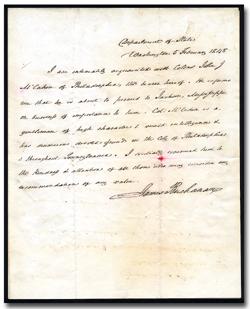 Department of State
Washington 5 February 1848
I am intimately acquainted with Colonel John J
McCahen of Philadelphia, the bearer hereof. He informs
me that he is about to proceed to Jackson, Mississippi
on business of importance to him. Col: McCahen is a
gentleman of high character & much intelligence &
has numerous friends in the City of Philadelphia
& throughout Pennsylvania. I cordially recommend him to
the kindness & attention of all those who may consider my
recommendation of any value.
James Buchanan